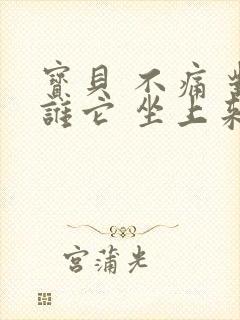 寶貝 不痛
誰它 坐上
宮蒲光